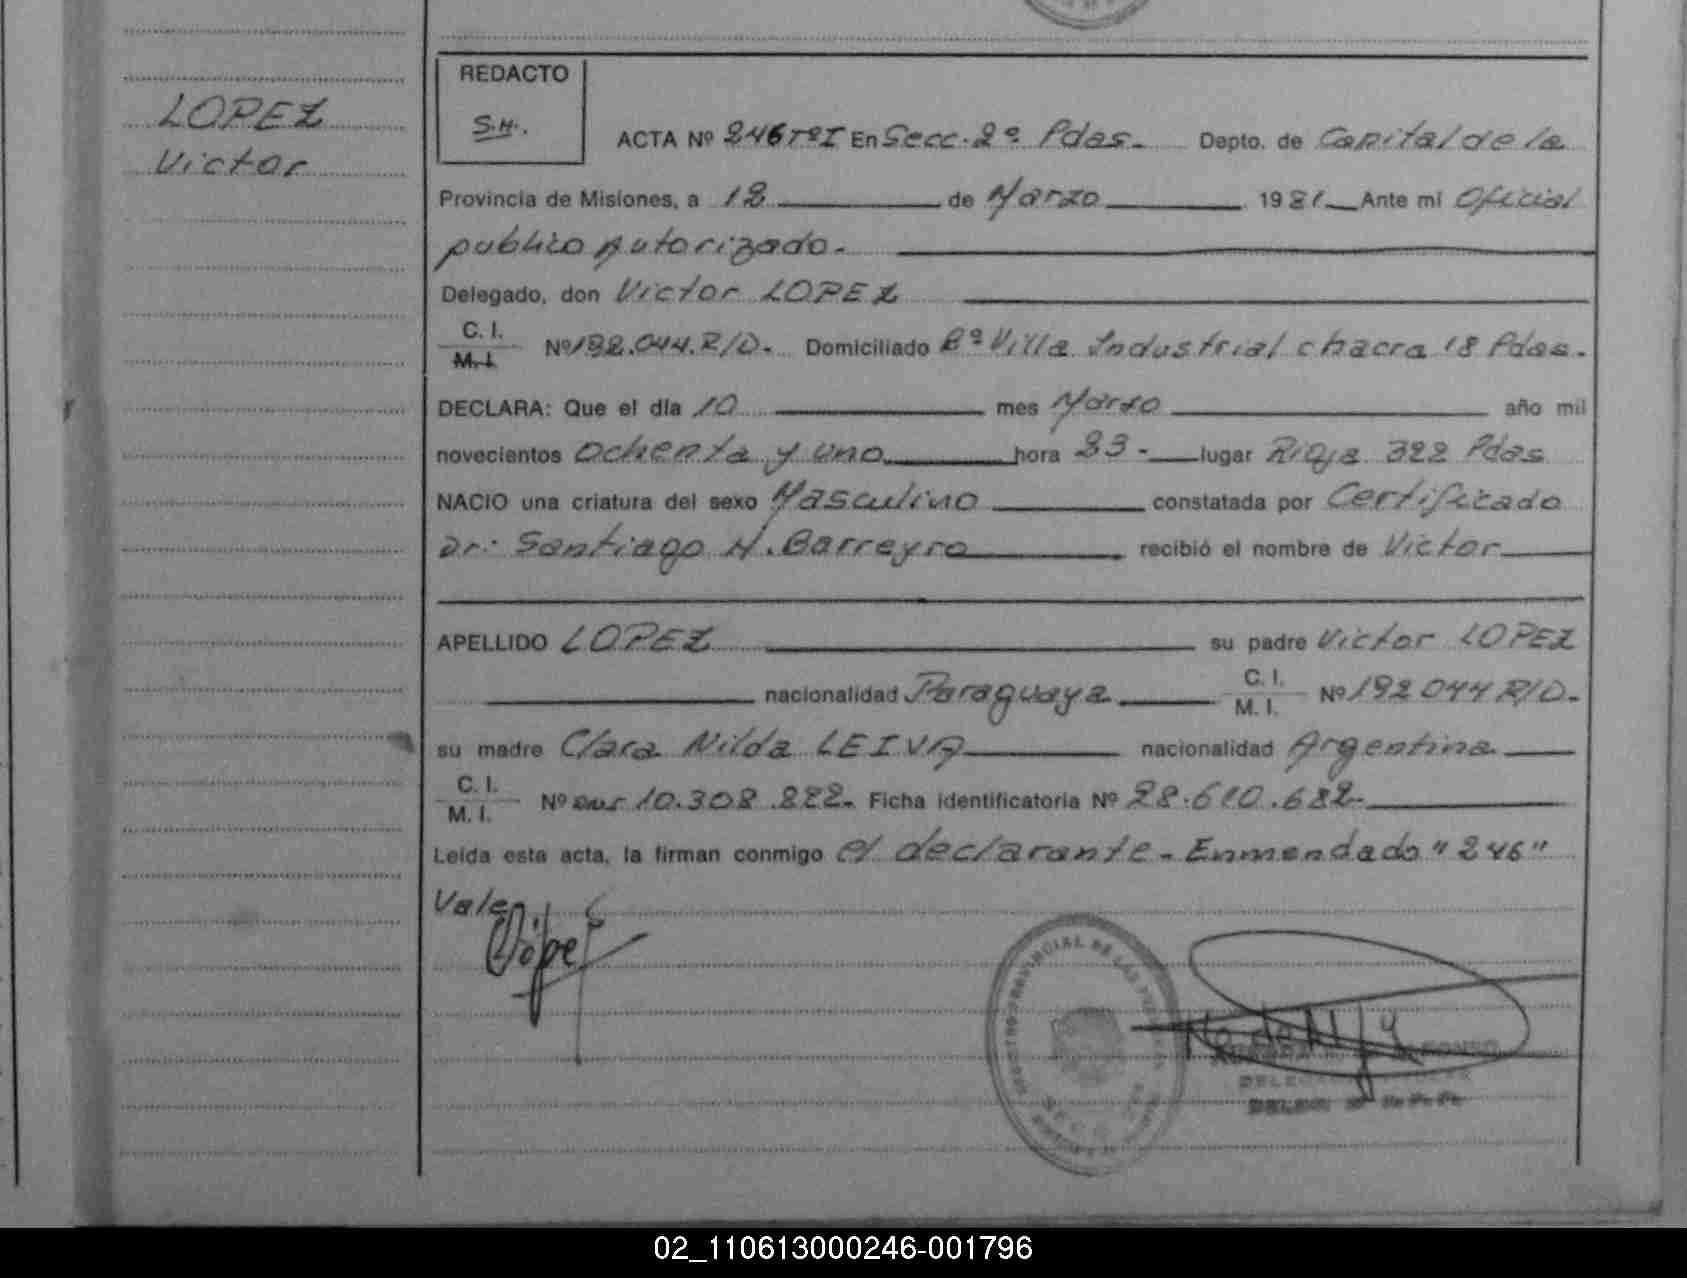 LOPEZ
Victor
REDACTO
S.H.
ACTA Nº 246 TºI En Secc. 2º Pdas. Depto. de Capital de la
Provincia de Misiones, a 18 de Marzo 1981 Ante mi Oficial
publico Autorizado.
Delegado, don Victor LOPEZ
C. I.
M. I.
Nº 192.044.R/D. Domiciliado Bº Villa Industrial chacra 18 Pdas.
DECLARA: Que el dia 10 mes Marzo año mil
novecientos ochenta y uno hora 23 - lugar Rioja 322 Pdas
NACIO una criatura del sexo Masculino constatada por Certificado
Dr. Santiago N. Barreyro recibió el nombre de Victor
APELLIDO LOPEZ su padre Victor LOPEZ
nacionalidad Paraguaya C. I. M. I. Nº 192044 R/D.
su madre Clara Nilda LEIVA nacionalidad Argentina
C. I.
M. I.
Nº 10.308.222. Ficha identificatoria Nº 28.610.682
Leída esta acta, la firman conmigo el declarante - Enmendado "246"
Vale
López
REGISTRO PROVINCIAL DE LAS PERSONAS
SECC.
DELEGADA TITULAR